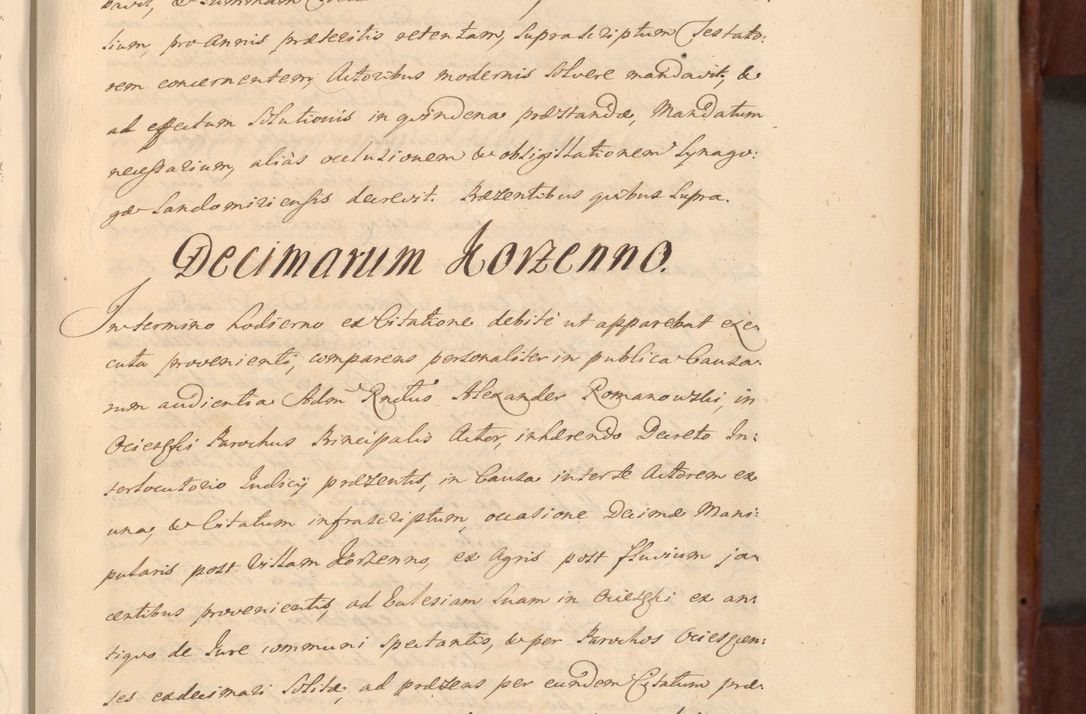 sium, pro Annis præteritis retentam, supra scriptum Testato:
rem concernentem, Actoribus modernis solvere mandavit, &
ad effectum Solutionis in quindena præstandæ, Mandatum
necessarium, aliàs occlusionem & obsigillationem Synago:
gæ Sandomiriensis decrevit. Præzentibus quibus supra.
Decimarum Korzenno.
In termino hodierno ex Citatione debitè ut apparebat exe-
cuta provenienti, comparens personaliter in publica Causa-
rum audientia Admd Rndus Alexander Romanowski, in
Ociesęki Parochus Principalis Actor, inhærendo Decreto In:
terlocutorio Iudicij præzentis, in Causa inter se Actorem ex
una, & Citatum infrascriptum, occasione Decimæ Mani:
pularis post Villam Korzenno, ex Agris post fluvium ja-
centibus provenientis, ad Eclesiam suam in Ociesęki ex an:
tiquo de Iure communi spectantis, & per Parochos Ociesęcen:
ses exdecimari Solitæ, ad præzens per eundem Citatum præ-